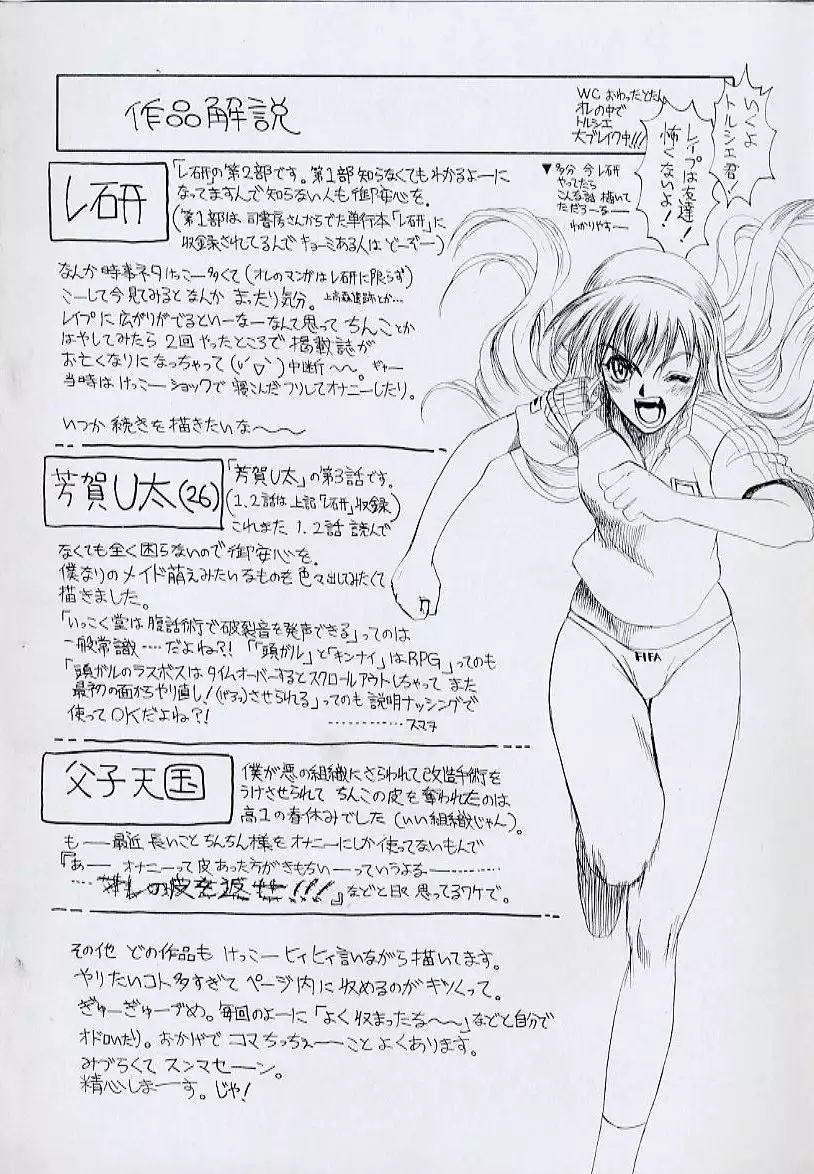 作品解説
WC おわったとたん
オレの中で
トルシエ
大ブレイク中!!!
いくよ
トルシエ君!
レイプは友達!
怖くないよ!
▼多分 今レ研
やってたら
こんな話 描いて
ただろーなー
わかりやすー
レ研
「レ研」の第2部です。第1部知らなくてもわかるよーに
なってますんで知らない人も御安心を。
(第1部は 司書房さんからでた単行本「レ研」に
収録されてるんで キョーミある人は どーぞー)
なんか 時事ネタ けっこー多くて(オレのマンガはレ研に限らず)
こーして今見てみると なんか まったり気分。上高森遺跡とか…
レイプに広がりがでるといーなーなんて思って ちんことか
はやしてみたら 2回 やったところで 掲載誌が
お亡くなりになっちゃって 中断〜〜。ギャー
当時は けっこー ショックで 寝こんだフリしてオナニーしたり。
いつか 続きを 描きたいな〜〜〜
芳賀U太(26)
「芳賀U太」の第3話です。
(1.2話は 上記「レ研」収録)
これまた 1.2話 読んで
なくても全く困らないので御安心を。
僕なりの メイド萌えみたいなものを 色々出してみたくて
描きました。
「いっこく堂は 腹話術で破裂音を発声できる」ってのは
一般常識……だよね?!「「頭ガル」と「キンナイ」はRPG」ってのも
「頭ガルのラスボスは タイムオーバーするとスクロールアウトしちゃって また
最初の面からやり直し!させられる」ってのも 説明ナッシングで
使って OKだよね?!
…………スマヌ
父子天国
僕が悪の組織にさらわれて改造手術を
うけさせられて ちんこの皮を奪われたのは
高1の春休みでした(いい組織じゃん)。
もー 最近 長いこと ちんちん様を オナニーにしか使ってないもんで
『あー オナニーって皮あった方がきもちいーっていうよなー…………
……オレの皮を返せ!!!』などと日々 思ってるワケで。
その他 どの作品も けっこー ヒィヒィ言いながら描いてます。
やりたいコト 多すぎて ページ内に収めるのが キツくって。
ぎゅーぎゅーづめ。毎回のよーに「よく収まったな〜〜」などと自分で
オドロいたり。おかげで コマちっちぇーー こと よくあります。
みづらくて スンマセーン。
精心しまーす。じゃ!
FIFA